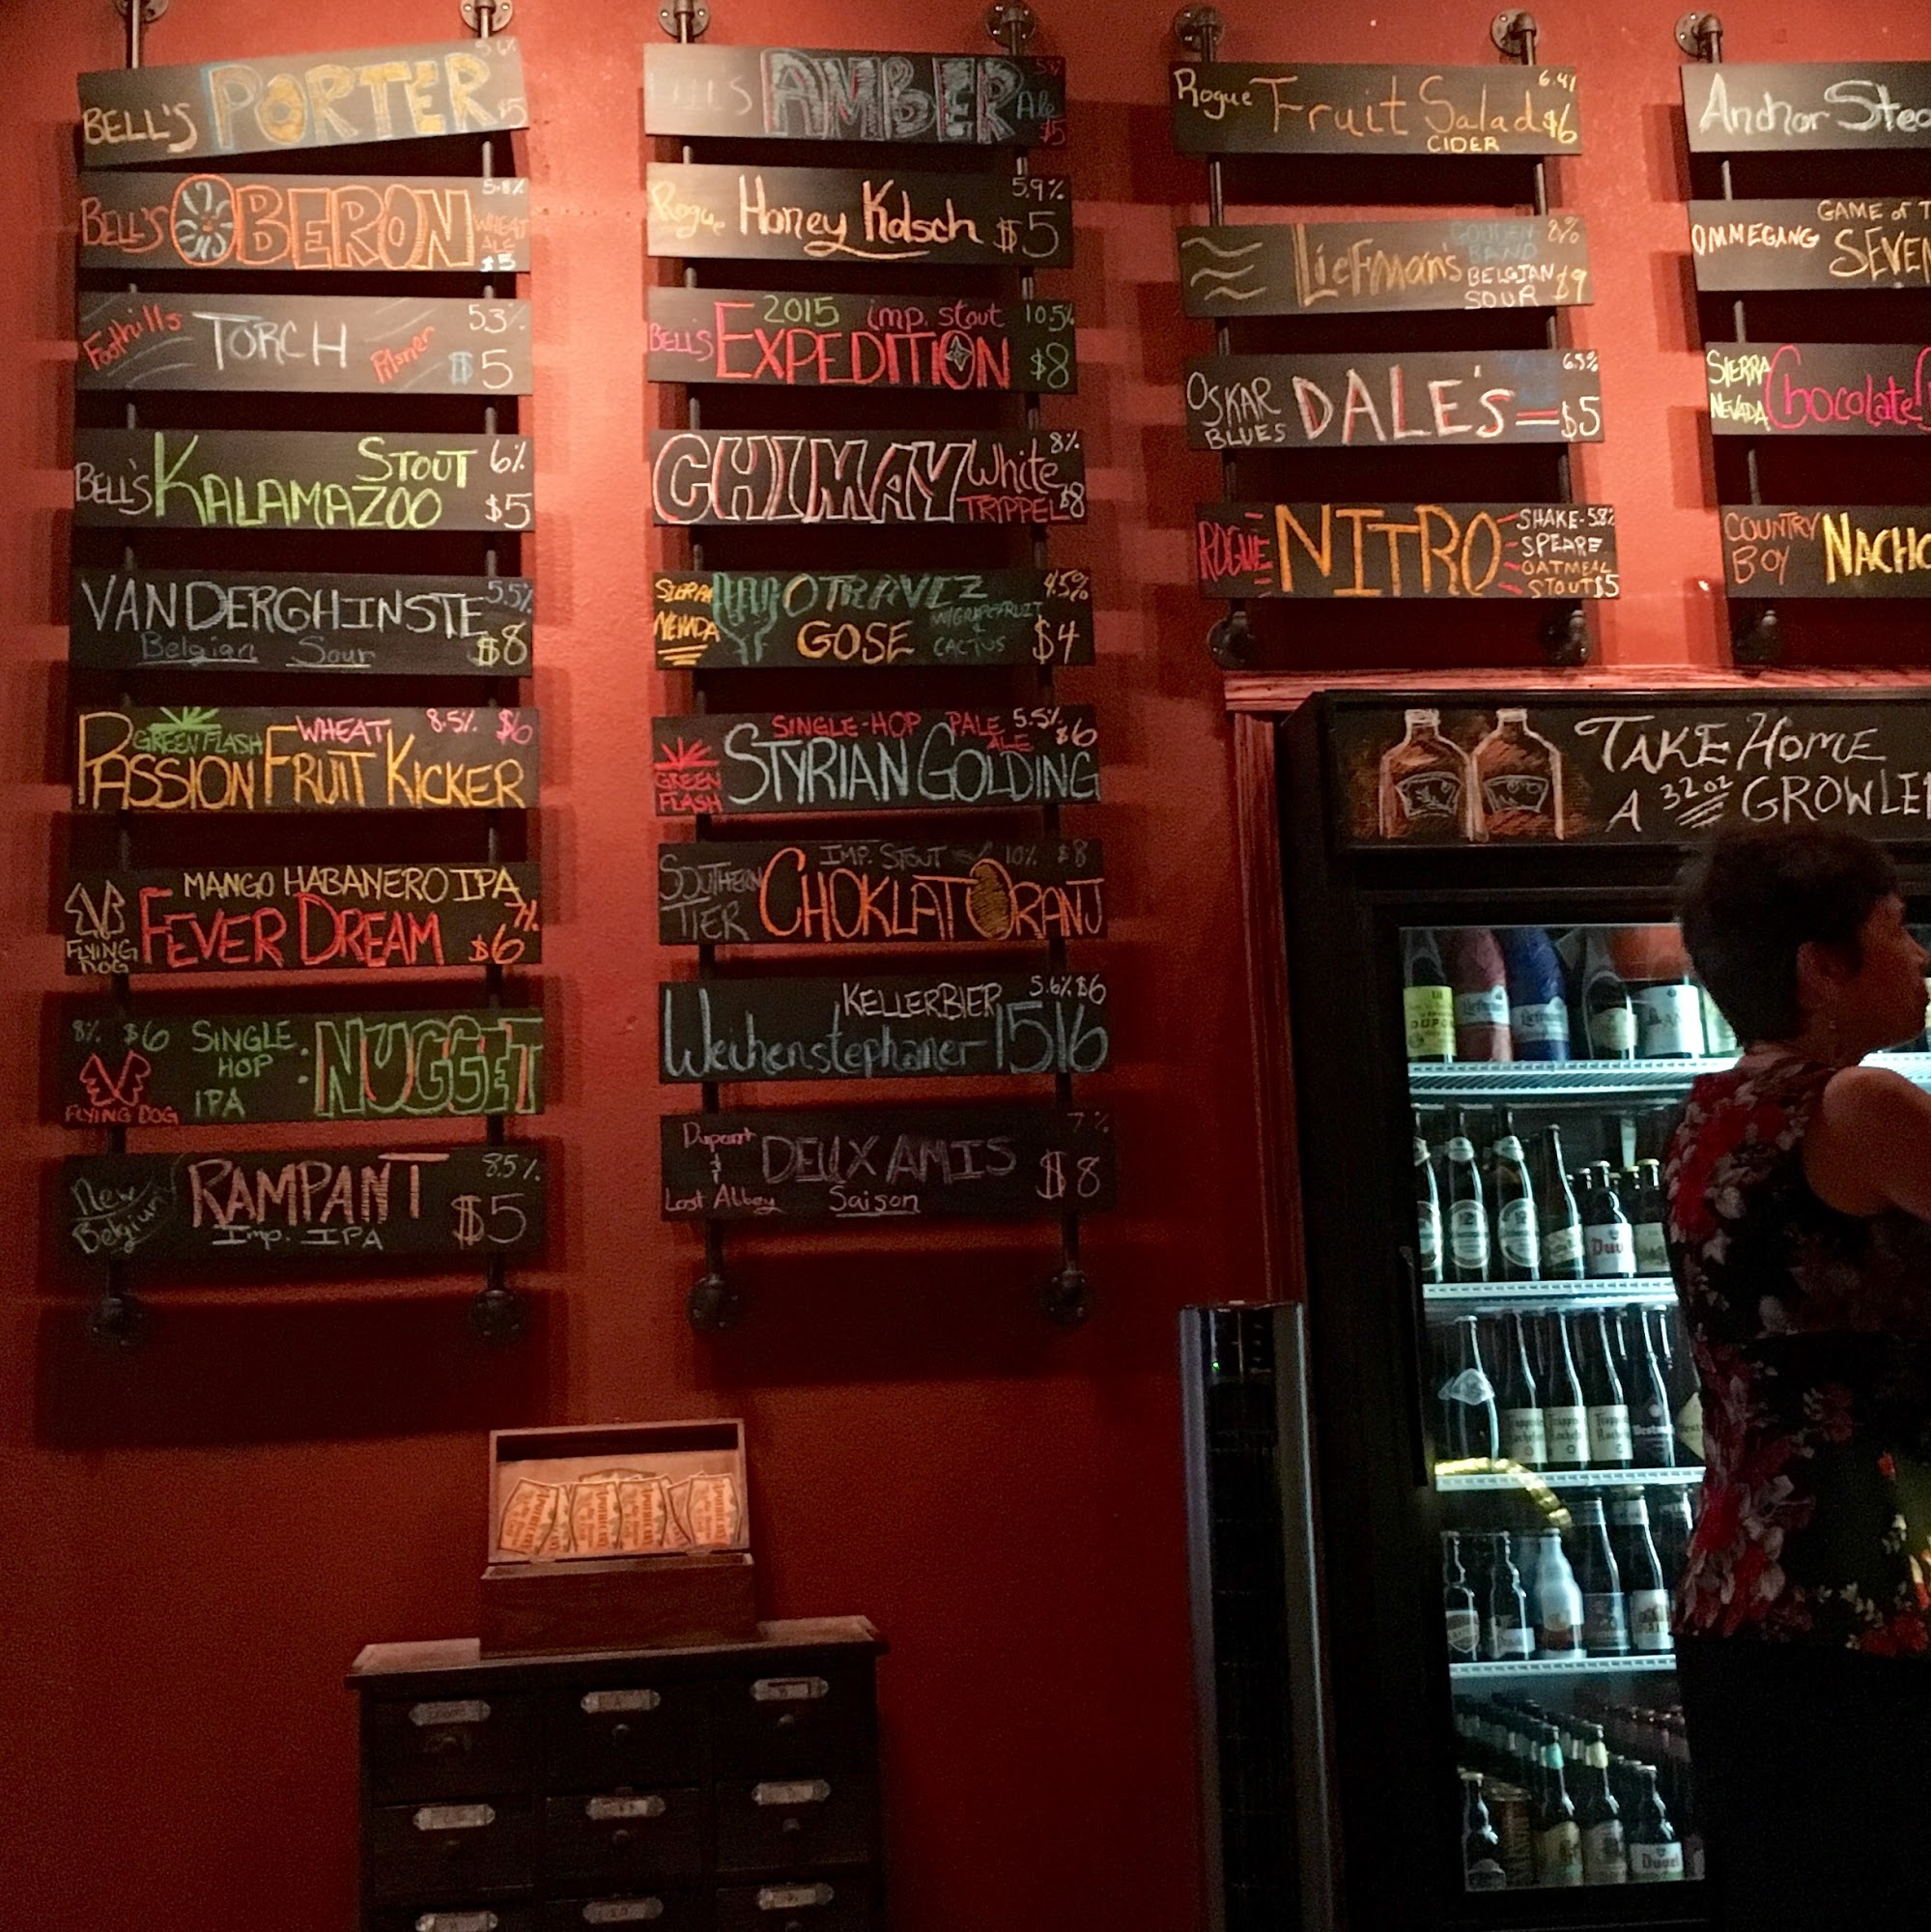 BELL'S PORTER 5.6% $5
BELL'S OBERON 5.8% WHEAT ALE $5
Foothills TORCH Pilsner 5.3% $5
BELL'S KALAMAZOO STOUT 6% $5
VANDERGHINSTE 5.5%
Belgian Sour $8
GREEN FLASH WHEAT 8.5% $6
PASSION FRUIT KICKER
MANGO HABANERO IPA
FLYING DOG FEVER DREAM 7% $6
8% $6 SINGLE HOP IPA : NUGGET
FLYING DOG
New Belgium RAMPANT 8.5%
Imp. IPA $5
AMBER Ale $5
Rogue Honey Kolsch 5.9% $5
2015 imp. stout 10.5%
BELL'S EXPEDITION $8
CHIMAY White 8%
TRIPPEL $8
SIERRA NEVADA OTRAVEZ 4.5%
GOSE W/GRAPEFRUIT & CACTUS $4
SINGLE-HOP PALE ALE 5.5% $6
GREEN FLASH STYRIAN GOLDING
IMP. STOUT 10% $8
SOUTHERN TIER CHOKLAT ORANJ
KELLERBIER 5.6% $6
Weihenstephaner 1516
Dupont & Lost Abbey DEUX AMIS 7%
Saison $8
Rogue Fruit Salad 6.4% $6
CIDER
LIEFMAN'S GOULDEN BAND 8%
BELGIAN SOUR $9
OSKAR BLUES DALE'S 6.5% $5
ROGUE NITRO SHAKE- 5.8%
SPEARE
OATMEAL
STOUT $5
Anchor Stea
GAME of T
OMMEGANG SEVEN
SIERRA NEVADA Chocolate
COUNTRY BOY NACHO
TAKE HOME
A 32oz GROWLE
Duvel